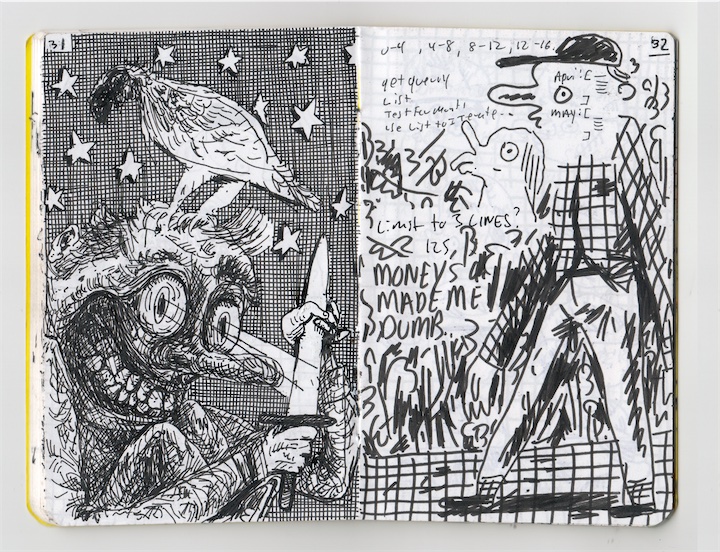 31
32
0-4, 4-8, 8-12, 12-16.
get query
List
Test For Months
Use List to Iterate..
April: [
]
MAY: [
]
Limit to 3 LINES?
125,
MONEYS
MADE ME
DUMB.